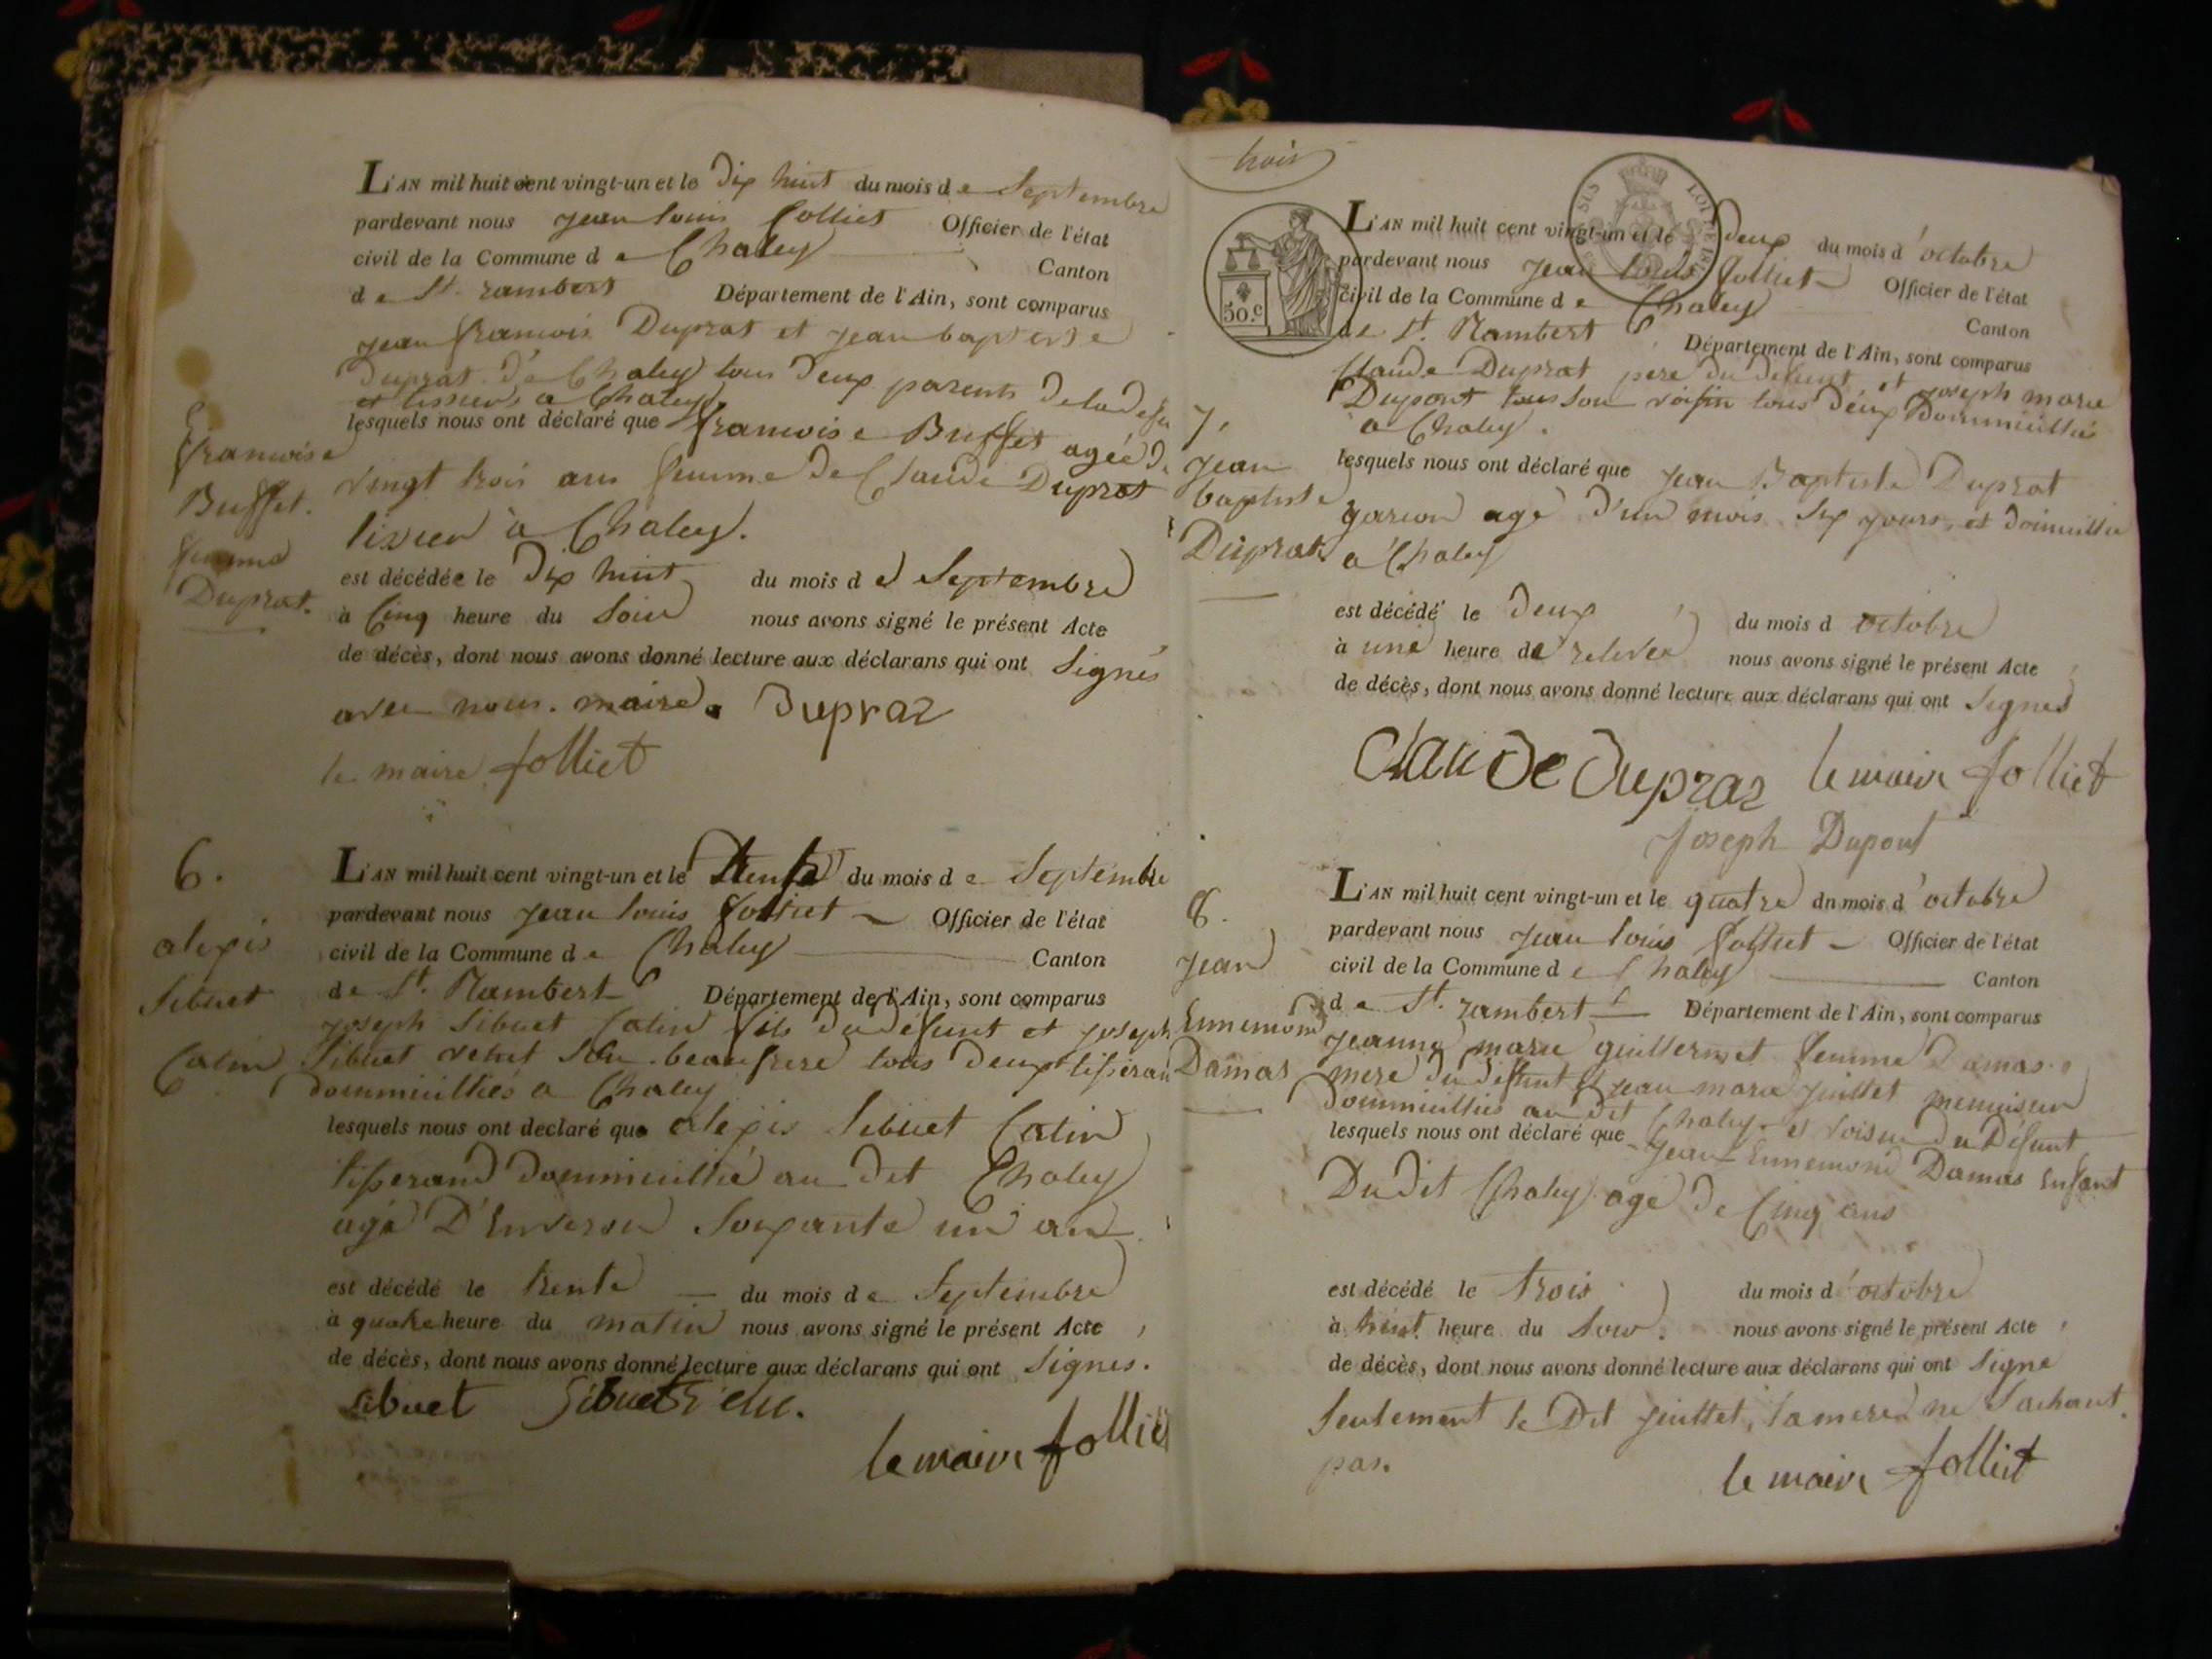 L'AN mil huit cent vingt-un et le dix huit du mois de Septembre
pardevant nous jean louis folliet Officier de l'état
civil de la Commune de Chaley Canton
de St. rambert Département de l'Ain, sont comparus
jean francois Duprat et jean baptiste
duprat de Chaley tous deux parents de la
et tisseurs a Chaley
lesquels nous ont déclaré que francoise Buffet agée de
vingt trois ans femme de Claude Duprat
tisseur à Chaley.
est décédée le dix huit du mois de Septembre
à Cinq heure du Soir nous avons signé le présent Acte
de décès, dont nous avons donné lecture aux déclarans qui ont Signés
avec nous. maire. dupraz
le maire folliet
francoise
Buffet.
femme
Duprat.
6.
alexis
Sibuet
Catin
L'AN mil huit cent vingt-un et le trente du mois de Septembre
pardevant nous jean louis folliet Officier de l'état
civil de la Commune de Chaley Canton
de St. Rambert Département de l'Ain, sont comparus
joseph Sibuet Catin fils du défunt et joseph
Sibuet son beaufrere tous deux tisseran
dommiciliés a Chaley
lesquels nous ont declaré que alexis Sibuet Catin
tisserand dommicillié au dit Chaley
agé D'Environ Soixante un an
est décédé le trente du mois de Septembre
à quatre heure du matin nous avons signé le présent Acte
de décès, dont nous avons donné lecture aux déclarans qui ont Signés.
sibuet Sibuet
le maire folliet
trois
SUS
50.c
7,
jean
baptiste
Duprat
L'AN mil huit cent vingt-un et le deux du mois d'octobre
pardevant nous jean louis folliet Officier de l'état
civil de la Commune de Chaley Canton
de St. Rambert Département de l'Ain, sont comparus
Claude Duprat pere du defunt, et joseph marie
Dupont son voisin tous deux dommiciliés
a Chaley.
lesquels nous ont déclaré que jean Baptiste Duprat
garcon agé d'un mois six jours, et domicillié
a Chaley
est décédé le deux du mois d octobre
à une heure de relevée nous avons signé le présent Acte
de décès, dont nous avons donné lecture aux déclarans qui ont Signés
Claude dupraz le maire folliet
Joseph Dupont
8.
jean
Ennemond
Damas
L'AN mil huit cent vingt-un et le quatre du mois d'octobre
pardevant nous jean louis folliet Officier de l'état
civil de la Commune de Chaley Canton
de St. rambert Département de l'Ain, sont comparus
jeanne marie guillermet femme damas
mere du defunt et jean marie juillet menuisier
dommiciliés au dit Chaley et voisin du Défunt
lesquels nous ont déclaré que jean Ennemond Damas Enfant
Du dit Chaley agé de Cinq ans
est décédé le trois du mois d'octobre
à huit heure du Soir. nous avons signé le présent Acte
de décès, dont nous avons donné lecture aux déclarans qui ont Signé
Seulement le Dit juillet, la mere ne Sachant
pas.
le maire folliet